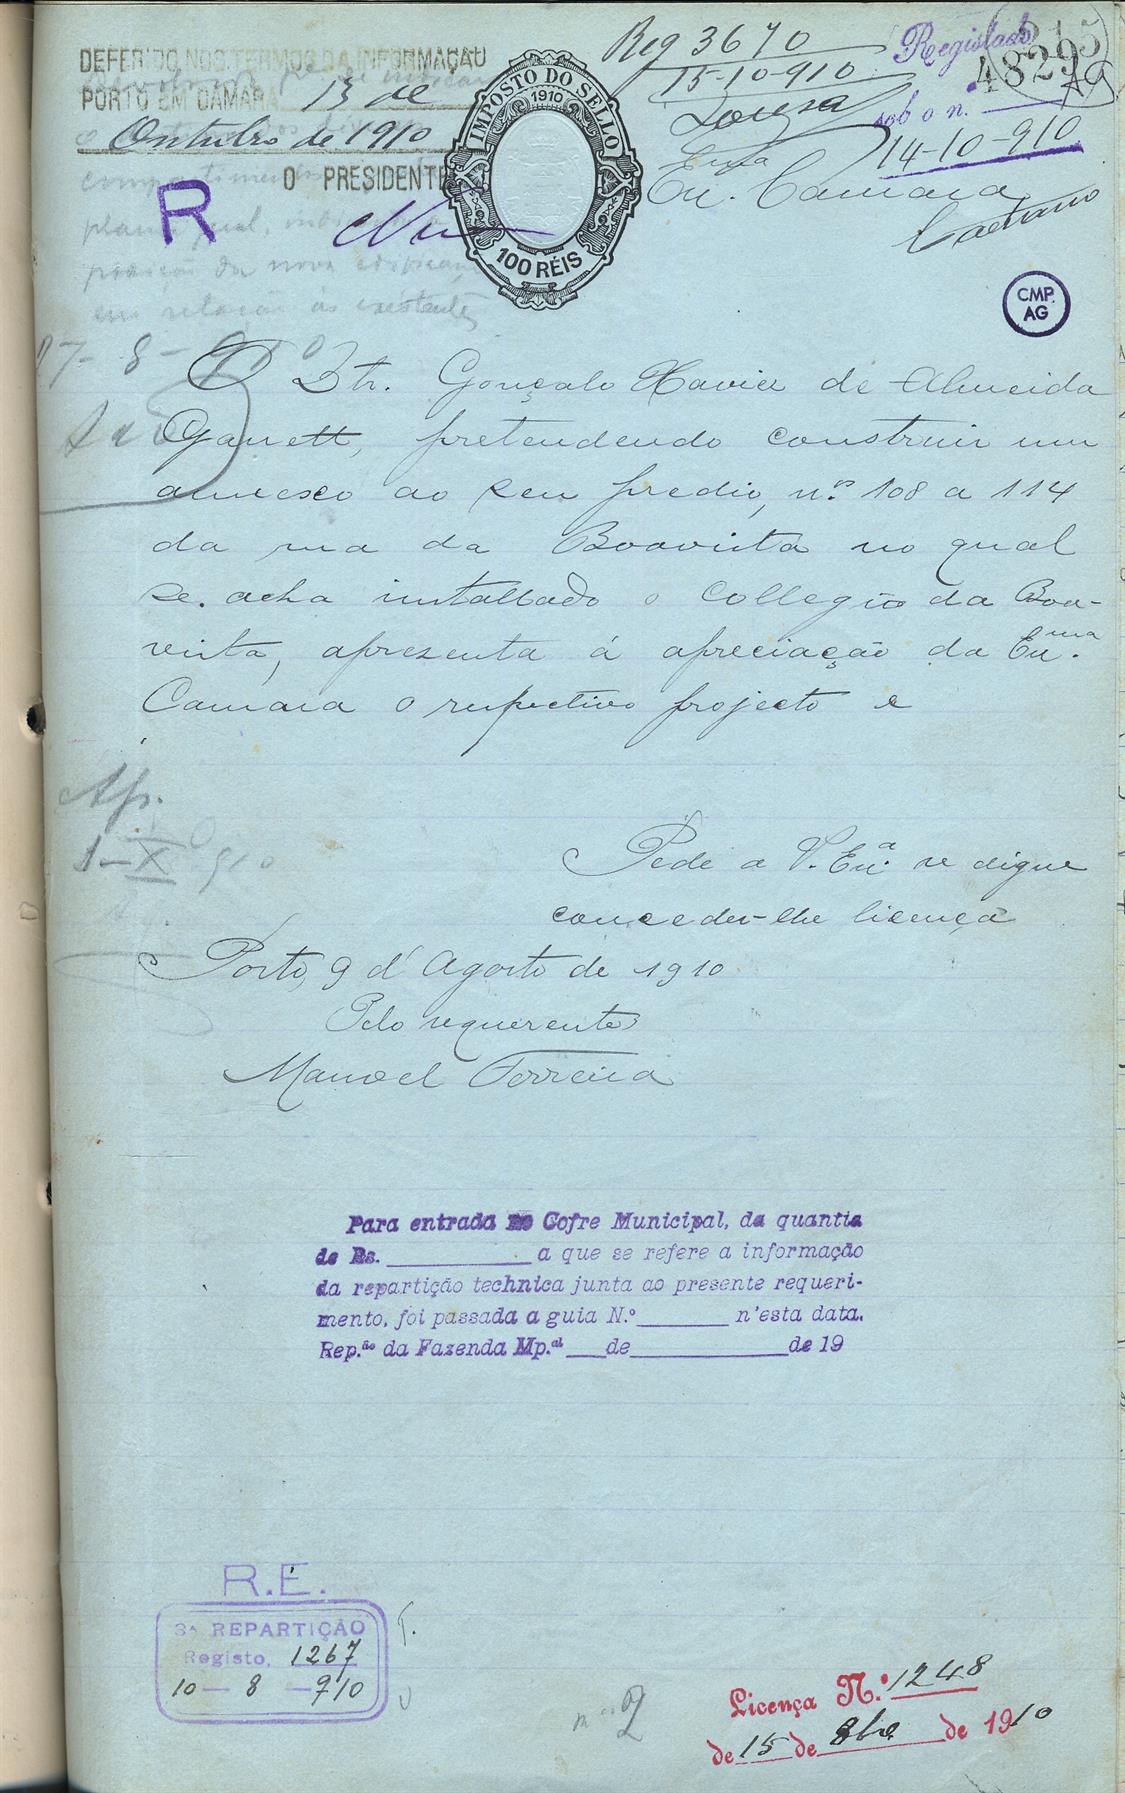 DEFERIDO NOS TERMOS DA INFORMAÇÃO
PORTO EM CAMARA 13 de
Outubro de 1910
O PRESIDENTE
R
IMPOSTO DO SELLO
1910
100 RÉIS
Reg 3670
15-10-910
Souza
Registado
sob o n.
14-10-910
Exma
Camara
Caetano
CMP.
AG
plan geral,
posição da nova edificação
em relação as existentes
17-8-910
O Dtr. Gonçalo Xavier de Almeida
Garrett, pretendendo construir um
annexo ao seu predio, nos 108 a 114
da rua da Boavista no qual
se acha installado o Collegio da Boa-
vista, aprezenta á apreciação da Exma.
Camara o respectivo projecto e
Ap.
1-X-910
Pede a V. Exa. se digne
conceder-lhe licença
Porto, 9 d'Agosto de 1910
Pelo requerente
Manoel Ferreira
Para entrada no Cofre Municipal, da quantia
de Rs. a que se refere a informação
da repartição technica junta ao presente requeri-
mento, foi passada a guia N.º n'esta data.
Rep.ão da Fazenda Mp.al de de 19
R.E.
3ª REPARTIÇÃO
Registo, 1267
10-8-910
Licença N.º 1248
de 15 de 8bro de 1910